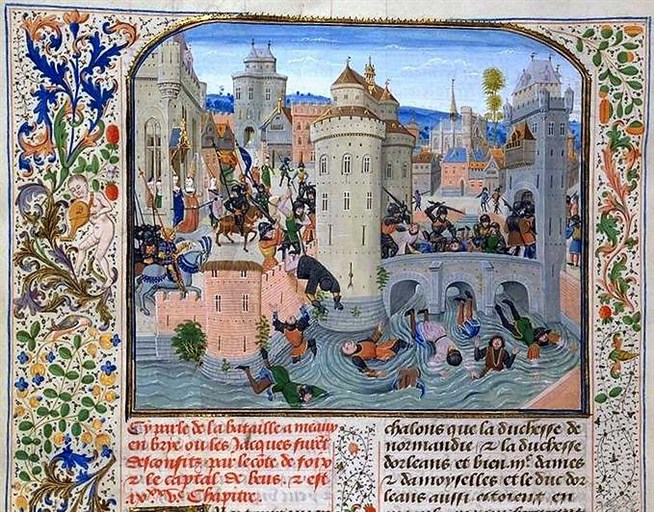 Cy parle de la bataille a meaux
en brye ou les Jacques furēt
desconfits par le cōte de foix
⁊ le captal de beus. ⁊ est
Chapitre.
chalons que la duchesse de
normandie ⁊ la duchesse
dorleans et bien .iijᶜ. dames
⁊ damoyselles et le duc dor
leans aussi estoient en